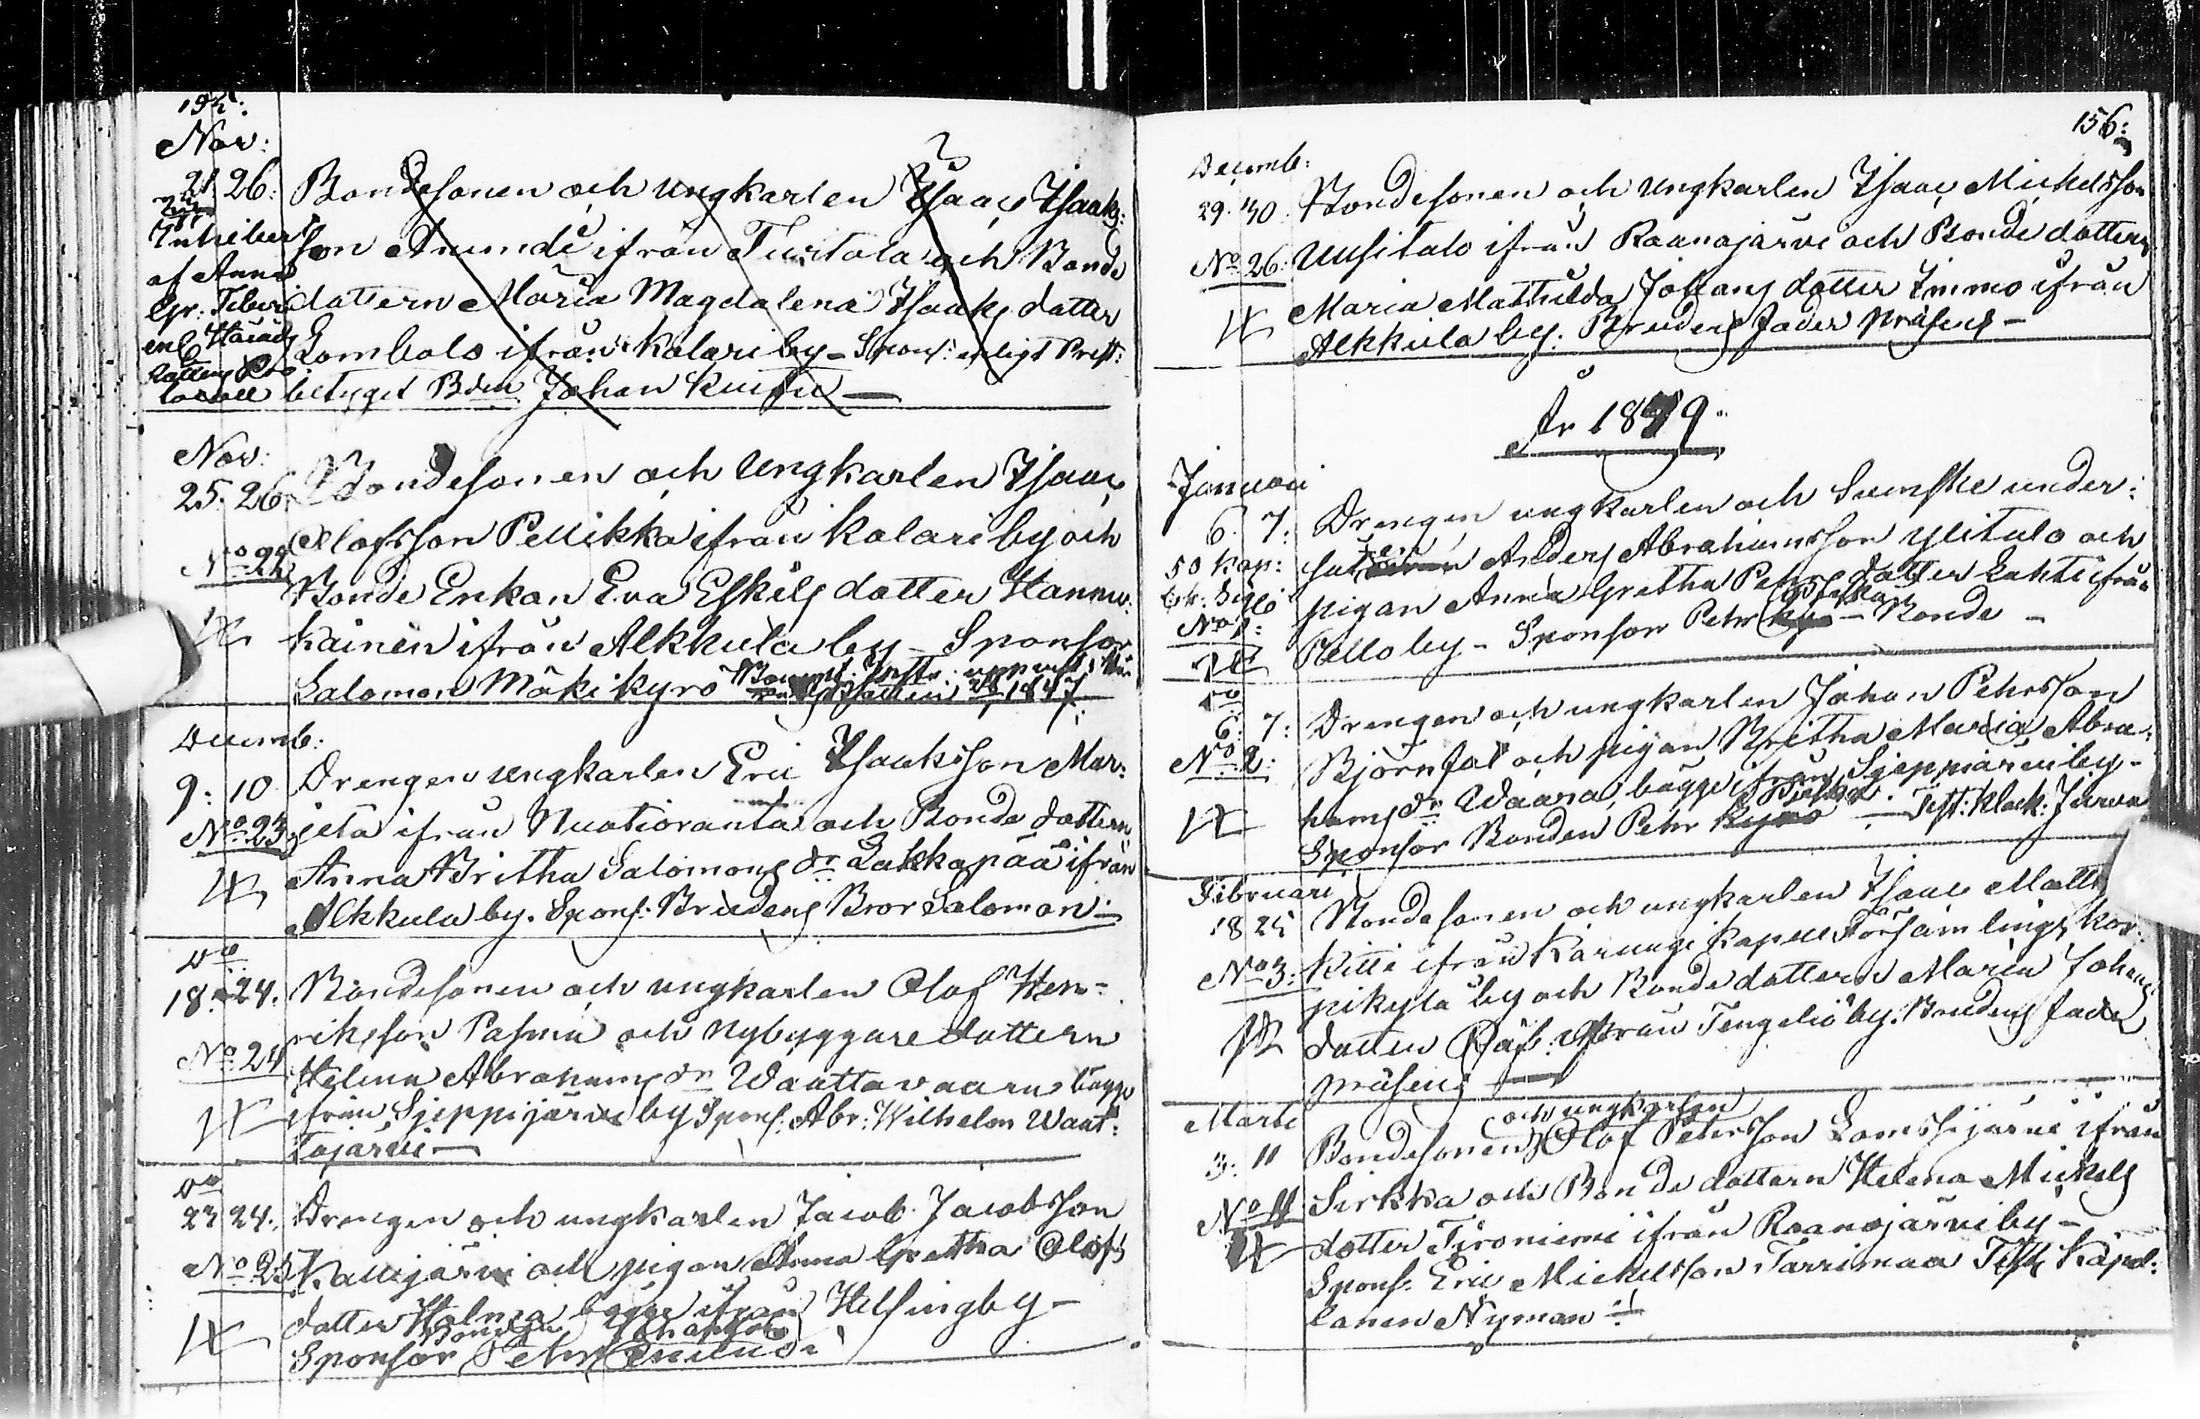 Nov:
21. 26: Bondesonen och ungkarlen Isaac Isaaks:
son ifrån Turtola och Bonde
af Anna
dottern Maria Magdalena Isaaks dotter
Lombolo ifrån Kolari by – Spons: enligt Prest:
betyget Bden Johan
Nov:
25. 26. Bondesonen och Ungkarlen Isaac
Olofsson Pellikka ifrån Kolari by och
No 22
Bonde Enkan Eva Eskils dotter Hannu:
kainen ifrån Alkkula by – Sponsor
Salomon Mäkikyrö 1847.
Decemb:
9: 10 Drengen ungkarlen Eric Isaaksson Mar:
No 23 jeta ifrån Nuotioranta och Bonde dottern
Anna Britha Salomons dr Lakkapää ifrån
Alkkula by. Spons: Brudens Bror Salomon:
Do
18. 24. Bondesonen och ungkarlen Olof Hen-
riksson Pasma och nybyggare dottern
No 24
Helena Abrahams dr Waattovaara bägge
ifrån Sjeppijärvi by Spons: Abr: Wilhelm Want:
tajärvi –
Do
23 24. Drengen och ungkarlen Jacob Jacobsson
No 25 Kaunijärvi och pigan Anna Gretha Olofs
dotter bägge ifrån Helsingby –
Bonden Johansson
Sponsor Petter
156:
Decemb:
29. 30. Bondesonen och Ungkarlen Isaac Michelsson
No 26: Uusitalo ifrån Raanojärvi och Bonde dottern
Maria Mathilda Johans dotter Immo ifrån
Alkkula by: Brudens fader präsens –
År 1849.
Januari
6. 7: Drengen ungkarlen och Svenske under:
50 kop: såten Anders Abrahamsson Ylitalo och
pigan Anna Gretha Pehrs dotter Lahti ifrån
No 1:
Pello by – Sponsor Petr – Bonde –
Do
6: 7: Drengen och ungkarlen Johan Pehrsson
No 2: Björnfot och pigan Britha Maria Abra:
hams dr Waara, bägge ifrån Sjeppijärvi by –
Sponsor Bonden Petr – Test: Klock: Jurva
Februari
18 25 Bondesonen och ungkarlen Isaac Matts
No 3: Kitti ifrån Karungi Kapell Församlings Kor:
pikylä by och Bonde dottern Maria Johans
dotter Räf: ifrån Tengeliö by. Brudens fader
präsens –
Marti
och ungkarlen
3: 11 Bondesonen Olof Petersson Lomssijärvi ifrån
No 4 Sirkka och Bonde dottern Helena Mickels
dotter Tironiemi ifrån Raanojärvi by –
Spons. Eric Mickelsson Tarrimaa Test: Kapel:
lanen Nyman –